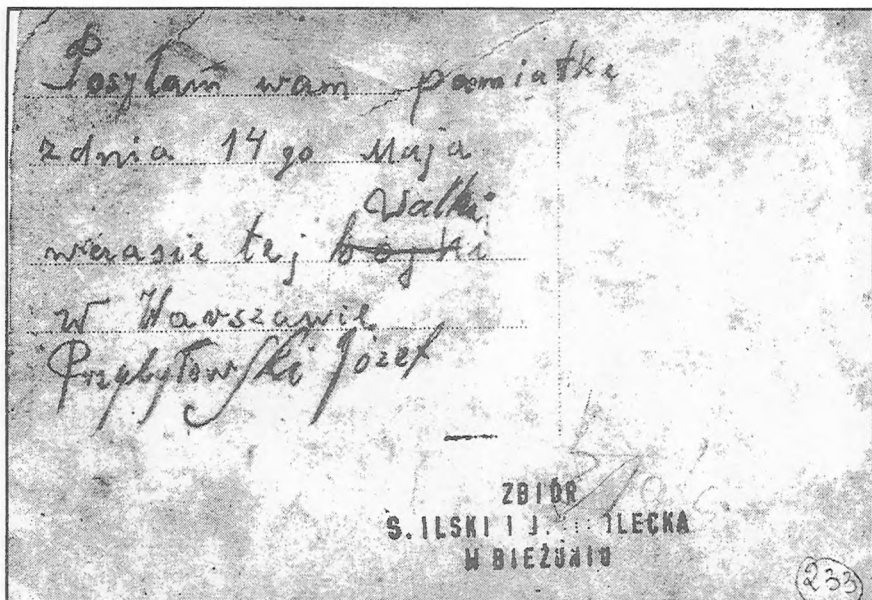 Posyłam wam pamiątkę
z dnia 14 go Maja
Walki
wczasie tej bójki
w Warszawie
Przybyłowski Józef
ZBIÓR
S. ILSKI I J. LECKA
W BIEŻUNIU
233